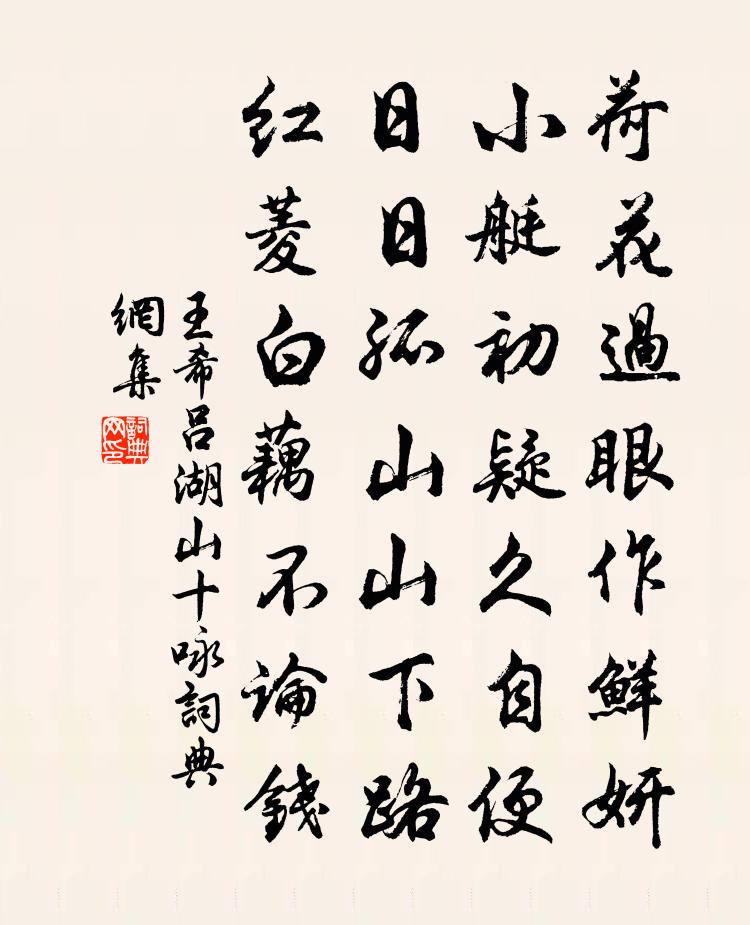 荷花過眼作鮮妍
小艇初疑久自便
日日孤山山下路
紅菱白藕不論錢
王希呂湖山十咏詞典
網集
詞典網印